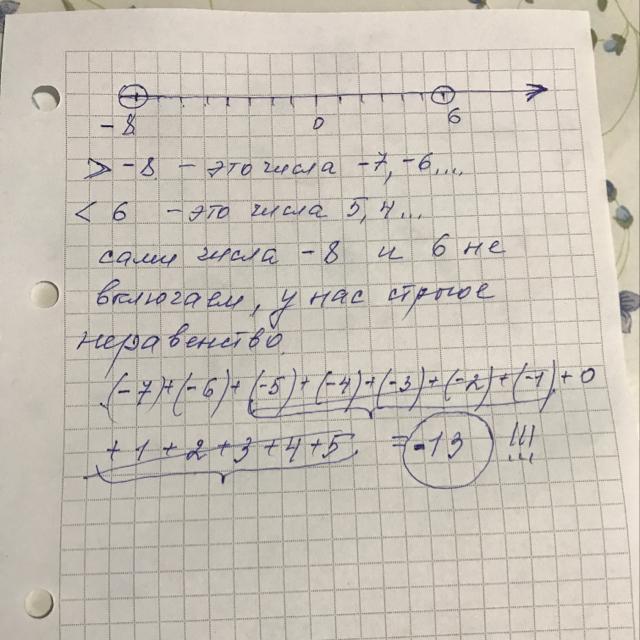 -8 0 6
> -8 - это числа -7, -6...
< 6 - это числа 5, 4...
сами числа -8 и 6 не
включаем, у нас строгое
неравенство.
(-7)+(-6)+(-5)+(-4)+(-3)+(-2)+(-1)+0
+1+2+3+4+5 = -13 !!!